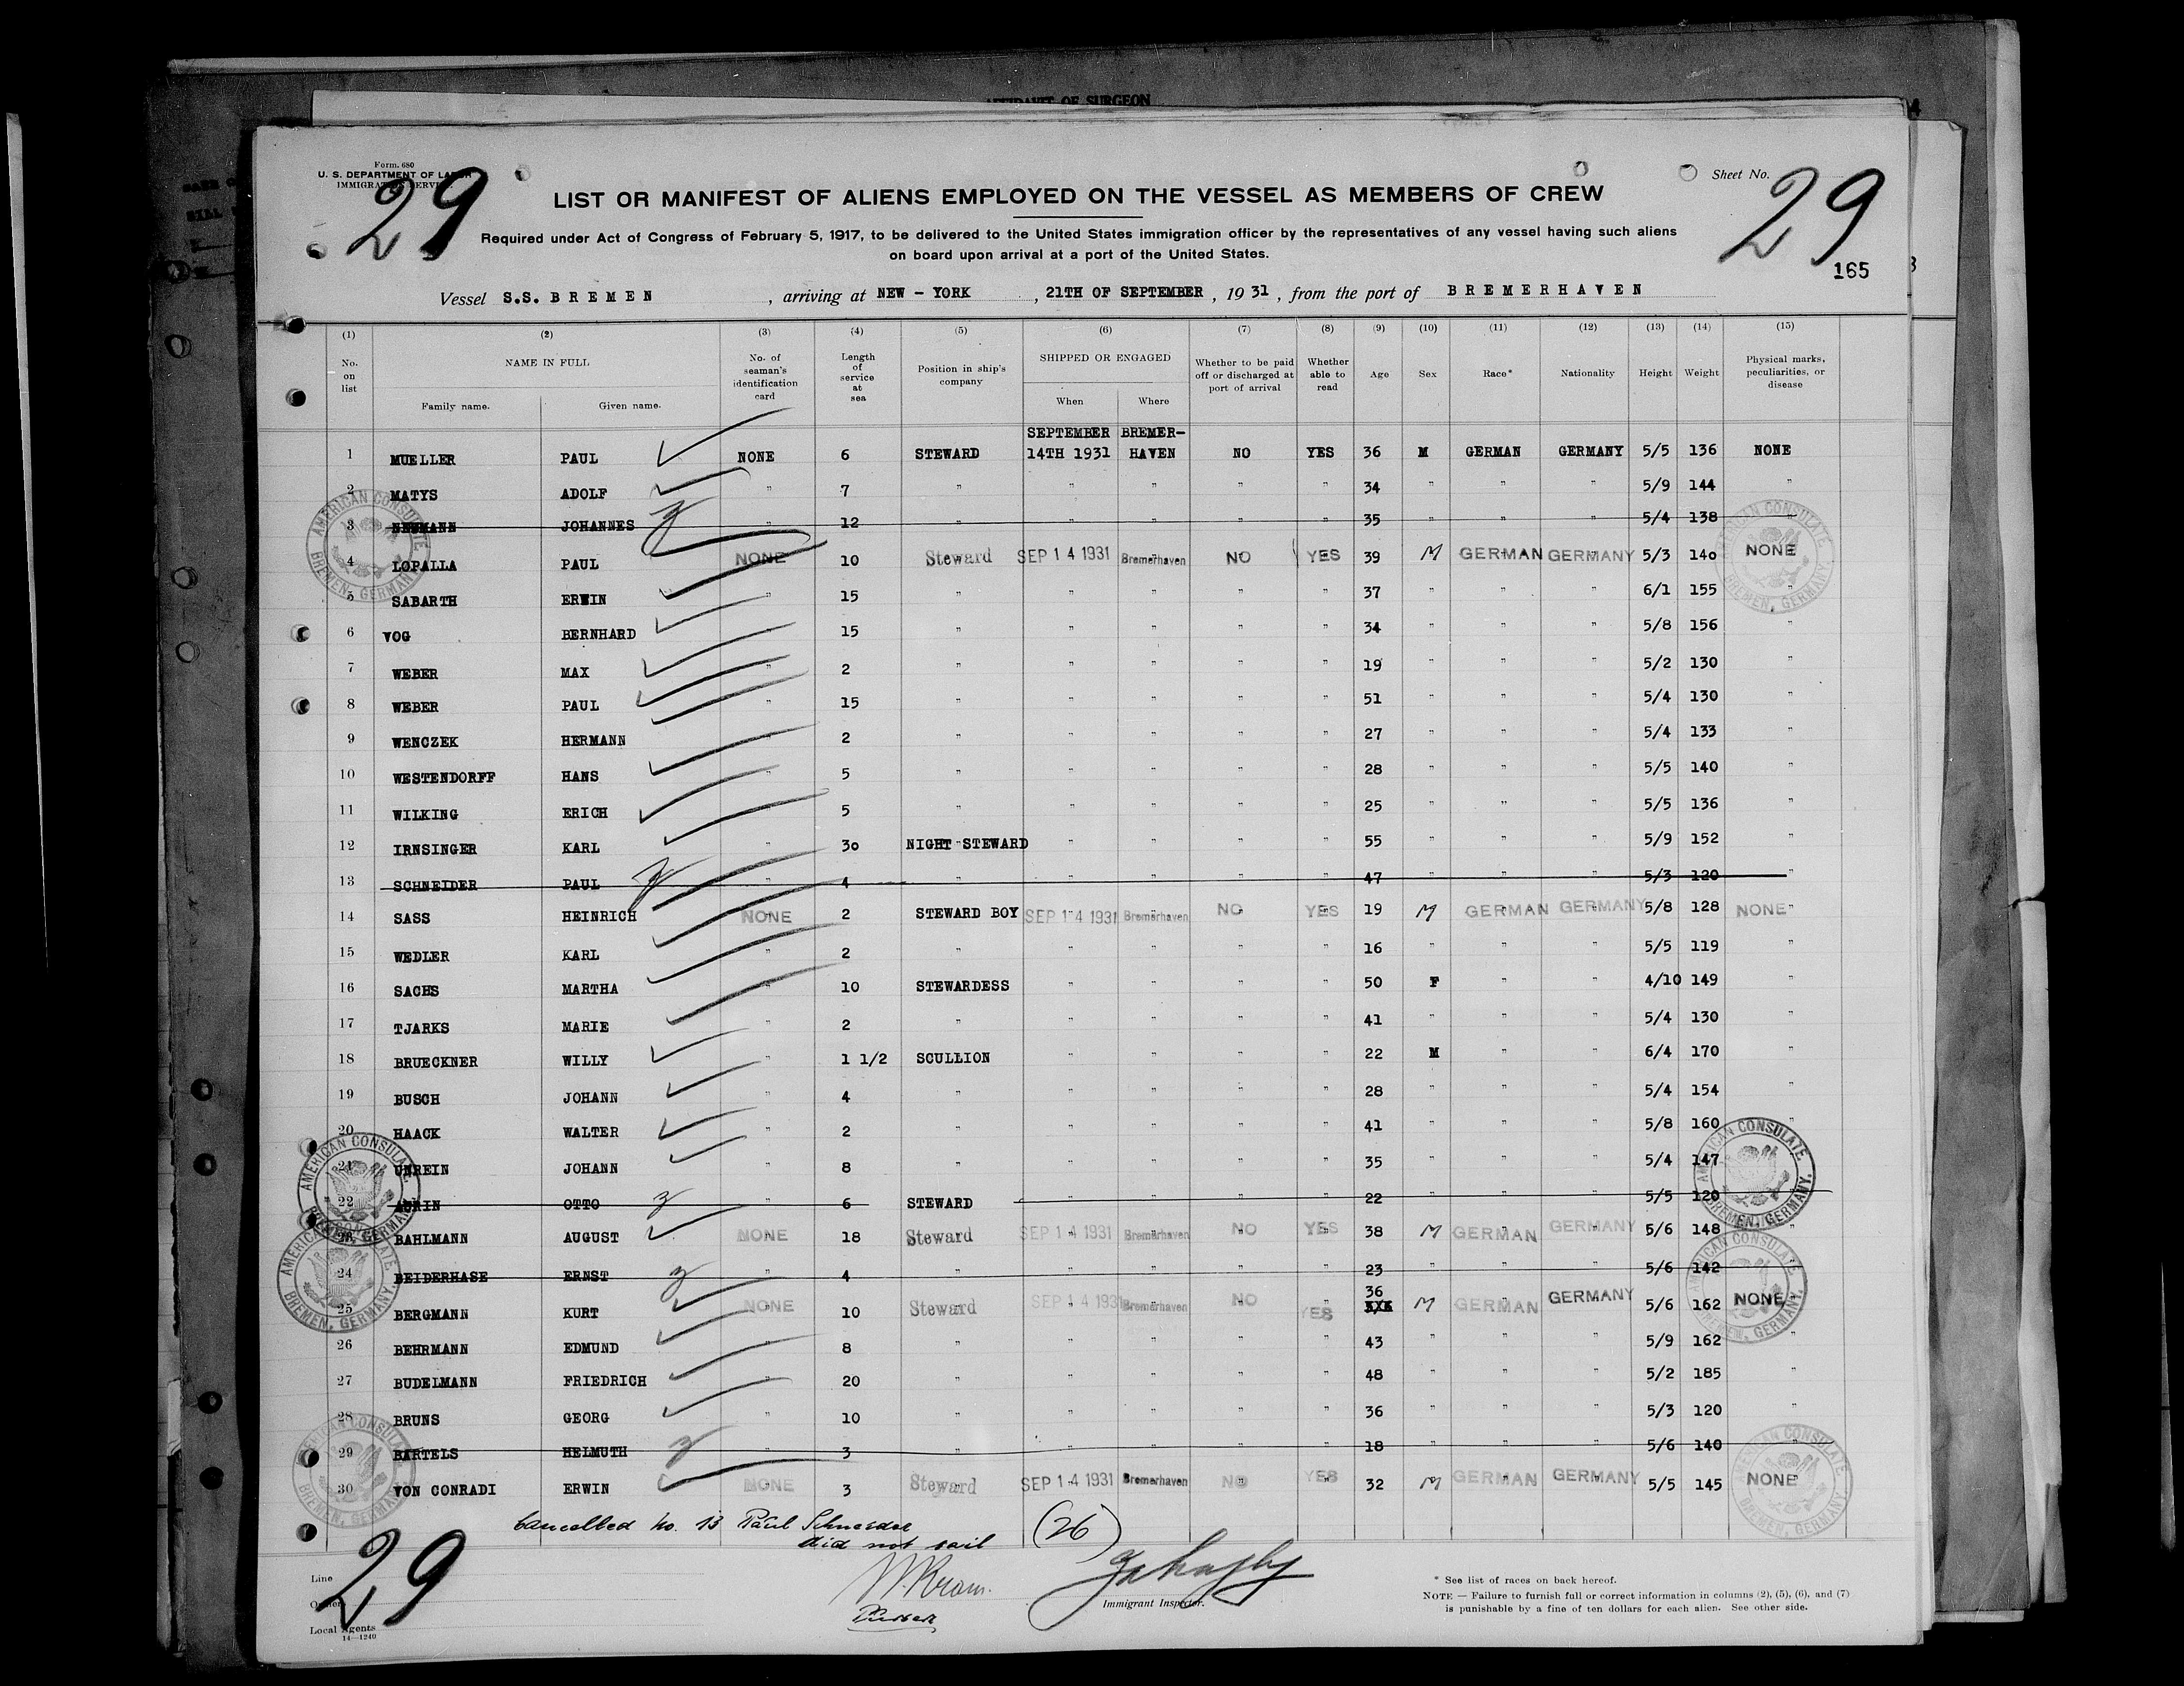 AFFIDAVIT OF SURGEON
Form. 680
U. S. DEPARTMENT OF LABOR
IMMIGRATION SERVICE
29
Sheet No.
29
165
LIST OR MANIFEST OF ALIENS EMPLOYED ON THE VESSEL AS MEMBERS OF CREW
Required under Act of Congress of February 5, 1917, to be delivered to the United States immigration officer by the representatives of any vessel having such aliens
on board upon arrival at a port of the United States.
Vessel S.S. BREMEN , arriving at NEW - YORK , 21TH OF SEPTEMBER , 19 31 , from the port of BREMERHAVEN
(1) (2) (3) (4) (5) (6) (7) (8) (9) (10) (11) (12) (13) (14) (15)
No. on list NAME IN FULL Family name. Given name. No. of seaman's identification card Length of service at sea Position in ship's company SHIPPED OR ENGAGED When Where Whether to be paid off or discharged at port of arrival Whether able to read Age Sex Race* Nationality Height Weight Physical marks, peculiarities, or disease
SEPTEMBER BREMER-
1 MUELLER PAUL NONE 6 STEWARD 14TH 1931 HAVEN NO YES 36 M GERMAN GERMANY 5/5 136 NONE
2 MATYS ADOLF " 7 " " " " " 34 " " " 5/9 144 "
3 NEUMANN JOHANNES " 12 " " " " " 35 " " " 5/4 138 "
4 LOPALLA PAUL NONE 10 Steward SEP 14 1931 Bremerhaven NO YES 39 M GERMAN GERMANY 5/3 140 NONE
5 SABARTH ERWIN " 15 " " " " " 37 " " " 6/1 155 "
6 VOG BERNHARD " 15 " " " " " 34 " " " 5/8 156 "
7 WEBER MAX " 2 " " " " " 19 " " " 5/2 130 "
8 WEBER PAUL " 15 " " " " " 51 " " " 5/4 130 "
9 WENCZEK HERMANN " 2 " " " " " 27 " " " 5/4 133 "
10 WESTENDORFF HANS " 5 " " " " " 28 " " " 5/5 140 "
11 WILKING ERICH 5 " " " " " 25 " " " 5/5 136 "
12 IRNSINGER KARL " 30 NIGHT STEWARD " " " " 55 " " " 5/9 152 "
13 SCHNEIDER PAUL " 4 " " " " " 47 " " " 5/3 120 "
14 SASS HEINRICH NONE 2 STEWARD BOY SEP 14 1931 Bremerhaven NO YES 19 M GERMAN GERMANY 5/8 128 NONE
15 WEDLER KARL " 2 " " " " " 16 " " " 5/5 119 "
16 SACHS MARTHA " 10 STEWARDESS " " " " 50 F " " 4/10 149 "
17 TJARKS MARIE " 2 " " " " " 41 " " " 5/4 130 "
18 BRUECKNER WILLY " 1 1/2 SCULLION " " " " 22 M " " 6/4 170 "
19 BUSCH JOHANN " 4 " " " " " 28 " " " 5/4 154 "
20 HAACK WALTER " 2 " " " " " 41 " " " 5/8 160 "
21 UNREIN JOHANN " 8 " " " " " 35 " " " 5/4 147
22 AURIN OTTO " 6 STEWARD " " " " 22 " " " 5/5 120
23 BAHLMANN AUGUST NONE 18 Steward SEP 14 1931 Bremerhaven NO YES 38 M GERMAN GERMANY 5/6 148 "
24 BEIDERHASE ERNST " 4 " " " " " 23 " " " 5/6 142
36
25 BERGMANN KURT NONE 10 Steward SEP 14 1931 Bremerhaven NO YES XXX M GERMAN GERMANY 5/6 162 NONE
26 BEHRMANN EDMUND " 8 " " " " " 43 " " " 5/9 162 "
27 BUDELMANN FRIEDRICH " 20 " " " " " 48 " " " 5/2 185 "
28 BRUNS GEORG " 10 " " " " " 36 " " " 5/3 120 "
29 BARTELS HELMUTH " 3 " " " " " 18 " " " 5/6 140 "
30 VON CONRADI ERWIN NONE 3 Steward SEP 14 1931 Bremerhaven NO YES 32 M GERMAN GERMANY 5/5 145 NONE
AMERICAN CONSULATE BREMEN, GERMANY
AMERICAN CONSULATE BREMEN, GERMANY
AMERICAN CONSULATE BREMEN, GERMANY.
AMERICAN CONSULATE BREMEN, GERMANY.
AMERICAN CONSULATE BREMEN, GERMANY.
AMERICAN CONSULATE BREMEN, GERMANY.
AMERICAN CONSULATE BREMEN, GERMANY
AMERICAN CONSULATE BREMEN, GERMANY
Cancelled No. 13 Paul Schneider
did not sail
(26)
29
Line
Owners
Local Agents
14—1240
Purser
Immigrant Inspector.
* See list of races on back hereof.
NOTE — Failure to furnish full or correct information in columns (2), (5), (6), and (7)
is punishable by a fine of ten dollars for each alien. See other side.